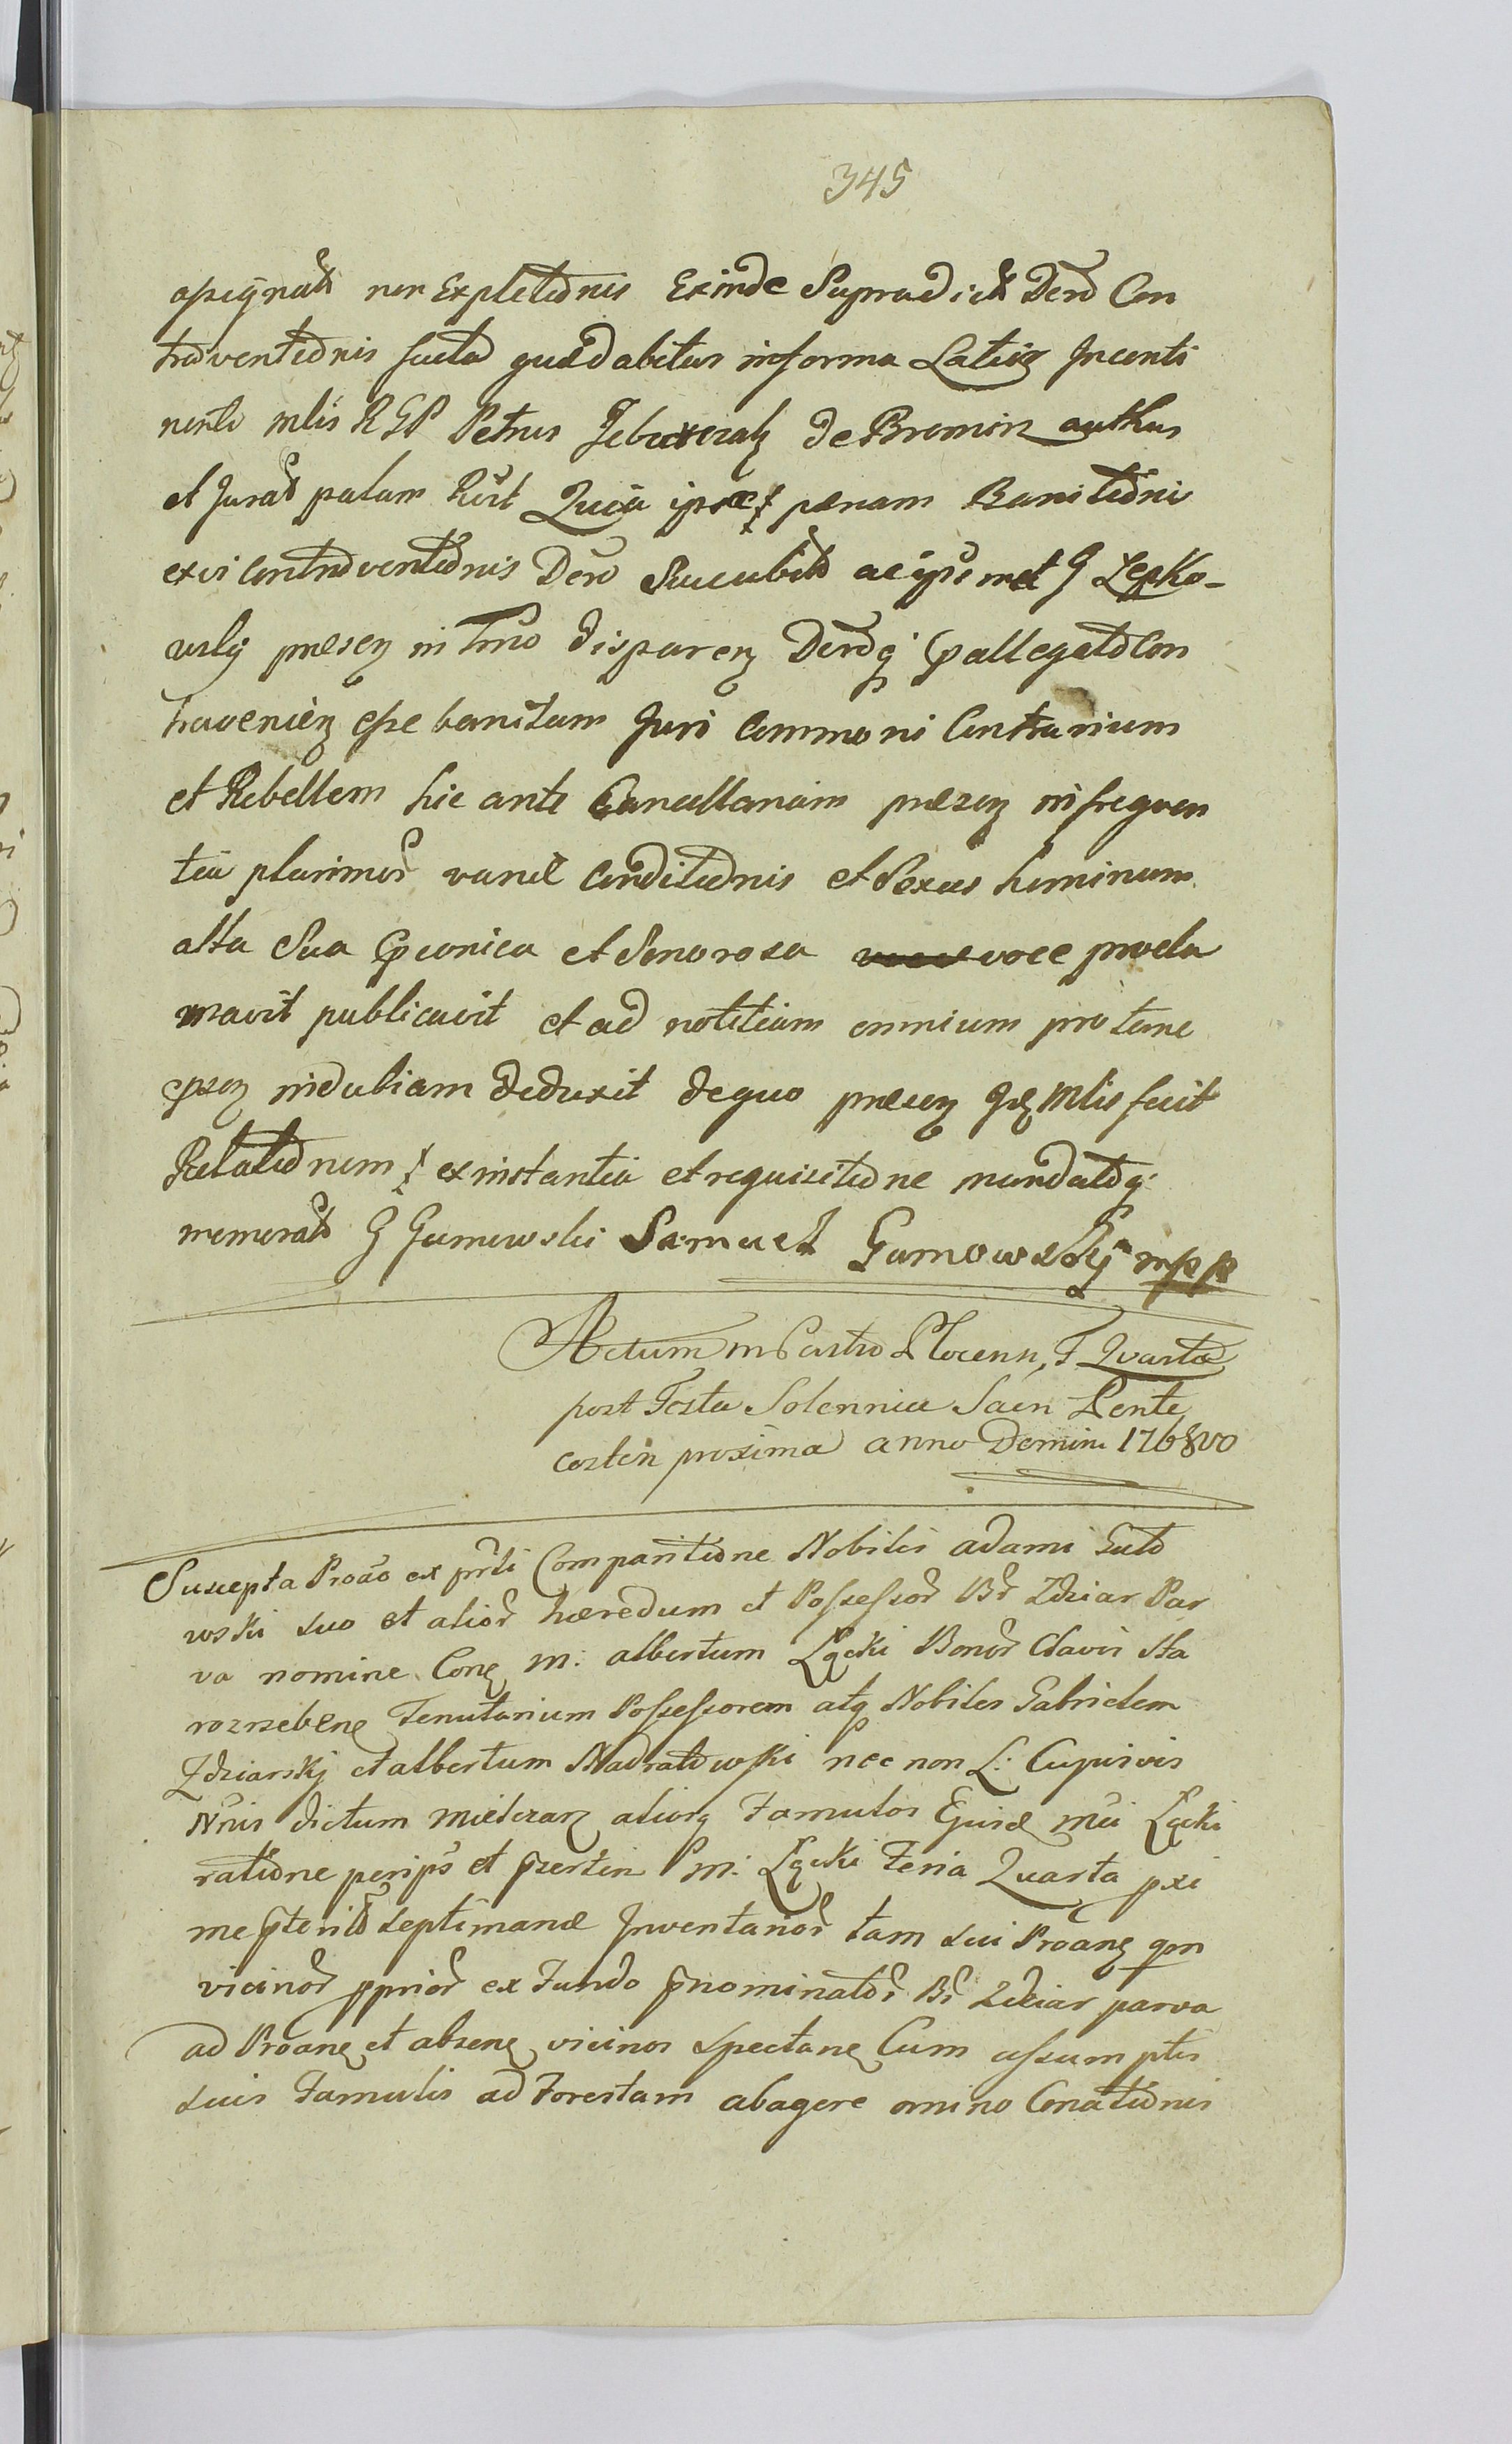 345
assignato non Expletionis Exinde Supradicto Dero Con
traventionis facta quae dabitur in forma Latiōz Inconti
nenti mlis RGP Petrus de Bromierz authus
et Jurat palam Rcūt Quia ipse pænam Banitionis
ex vi Contraventionis Dero Succubito ac ipsemet G Lepko-
wsky præsen in Trno disparen Deroq allegato Con
travenien esse banitum Juri Commoni Contrarium
et Rebellem hic ante Cancellariam præsen in frequen
tia plurimor variæ Conditionis et Sexus hominum
alta Sua et Sonorosa voce voce procla
mavit publicavit et ad notitiam omnium pro tunc
præsen indubiam deduxit de quo præsen Id mlis fecit
Relationem ex instantia et requisitione mandatoq
memorato G Gumowski Samuel Gumowsky mpp
Actum in Castro Plocensi, F Quarta
post Festa Solennia Sacn Pente
costen proxima anno Domini 1768vo
Suscepta Proāo ex prti Comparitione Nobilis adami Guto
wski suo et alior hæredum et Possessor Br Zdziar Par
va nomine Cong m: albertum Łącki Bonor Clavis Sta
rozrzebene Tenutarium Possessorem atq Nobiles Gabrielem
Zdziarskj et albertum Nadratowski nec non L: Cujusvis
Nnis dictum Mielcarz aliosq Famulos Ejusd mci Łącki
ratione per ips et prsertin m: Łącki Feria Quarta pxi
me pterito septimanæ Inventarior tam sui Proane qm
vicinor pprior ex Fundo pnominator Br Zdziar parva
ad Proane et absene vicinos spectane Cum assumptis
suis Famulis ad Forestam abagere omino Conationis